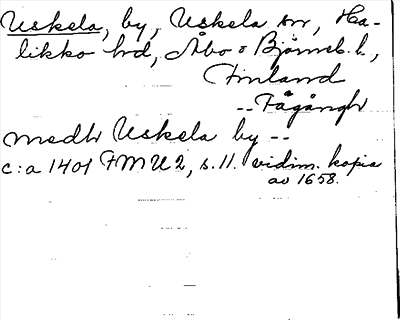 Uskela, by, Uskela sn, Ha-
likko hd, Åbo o Björneb. l.,
Finland
-- Fågångh
medh Uskela by --
c:a 1401 FMU 2, s. 11. vidim. kopia
av 1658.